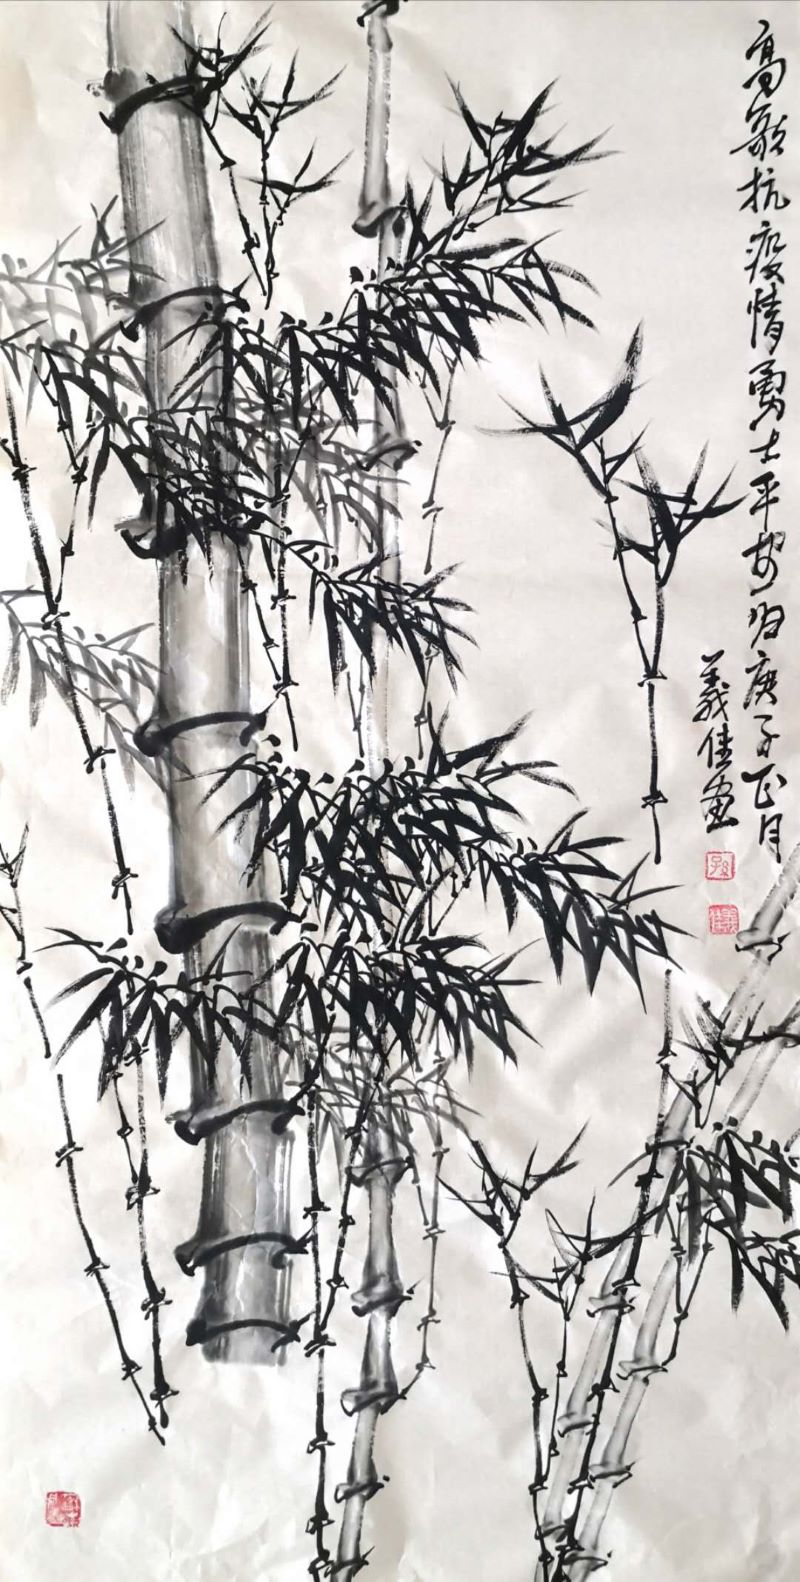 高歌抗疫情勇士平安归庚子正月
義佳画